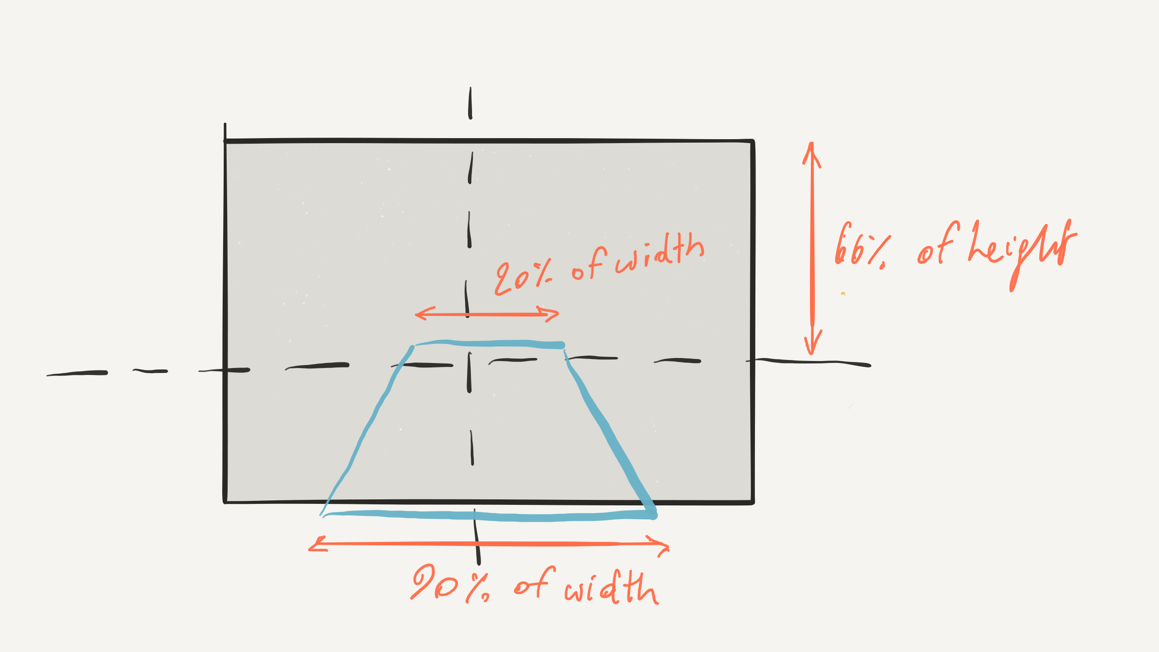 20% of width
66% of height
90% of width